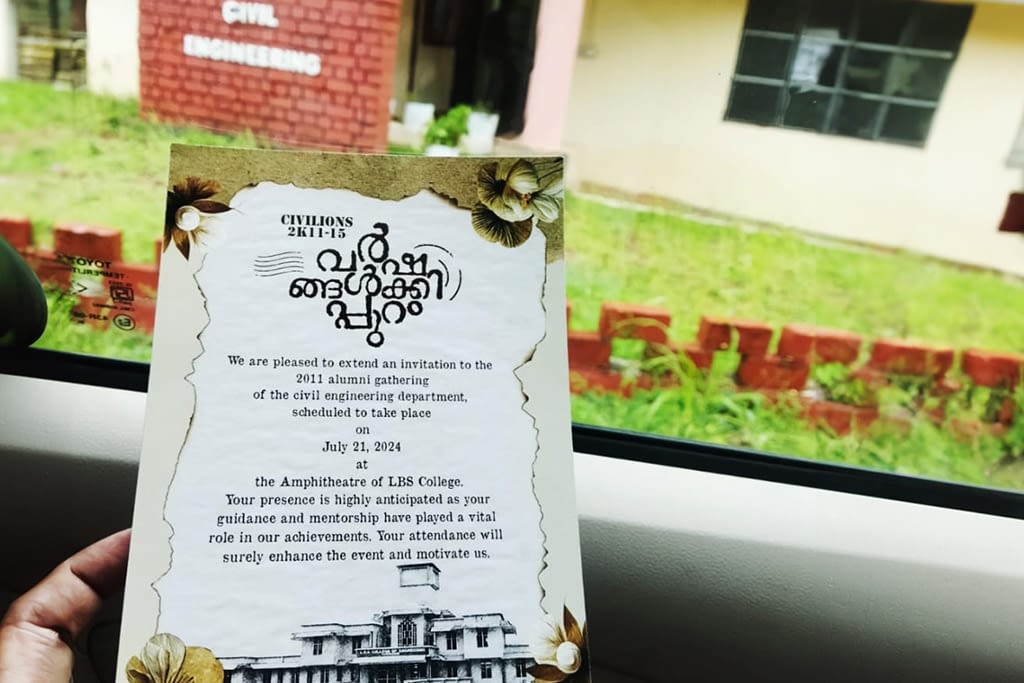 CIVIL
ENGINEERING
CIVILIONS
2K11-15
വർഷ
ങ്ങൾക്കി
പ്പുറം
We are pleased to extend an invitation to the
2011 alumni gathering
of the civil engineering department,
scheduled to take place
on
July 21, 2024
at
the Amphitheatre of LBS College.
Your presence is highly anticipated as your
guidance and mentorship have played a vital
role in our achievements. Your attendance will
surely enhance the event and motivate us.
TOYOTA
TEMPERLITE